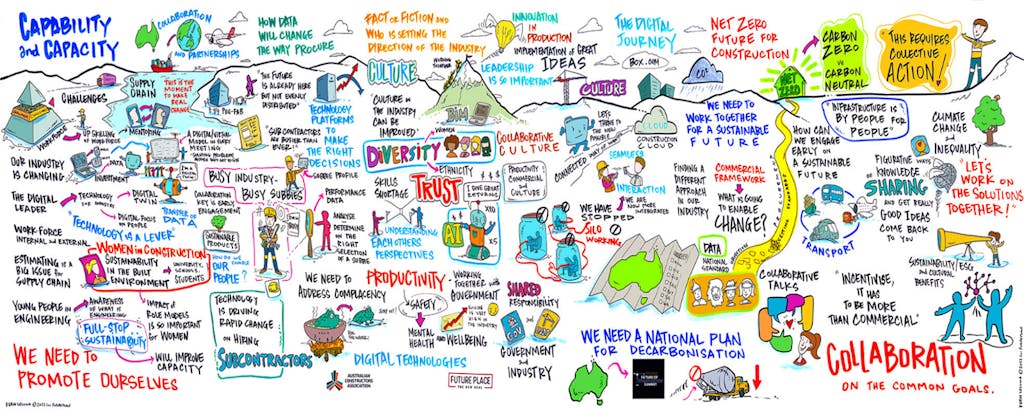 CAPABILITY
and CAPACITY
COLLABORATION
AND PARTNERSHIPS
HOW DATA
WILL CHANGE
THE WAY PROCURE
FACT OR FICTION AND
WHO IS SETTING THE
DIRECTION OF THE INDUSTRY
INNOVATION
IN PRODUCTION
IMPLEMENTATION OF GREAT
IDEAS
LEADERSHIP
IS SO IMPORTANT
THE DIGITAL
JOURNEY
BOX..COM
NET ZERO
FUTURE FOR
CONSTRUCTION
CO²
NET
ZERO
CARBON
ZERO
VS
CARBON
NEUTRAL
THIS REQUIRES
COLLECTIVE
ACTION!
CHALLENGES
WORKFORCE
SUPPLY
CHAIN
THIS IS THE
MOMENT
TO MAKE
REAL
CHANGE
UP SKILLING
OF WORKFORCE
MENTORING
"THE FUTURE
IS ALREADY HERE
BUT NOT EVENLY
DISTRIBUTED"
TECHNOLOGY
PLATFORMS
TO MAKE
THE RIGHT
DECISIONS
CULTURE
"CULTURE IN
THE INDUSTRY
CAN BE
IMPROVED"
BIM
CULTURE
LET'S
TO THE NEW
POSSIBLE
CONNECTED
WAY OF WORK
CLOUD
CONSTRUCTION
CLOUD
SEAMLESS
INTERACTION
WE NEED TO
WORK TOGETHER
FOR A SUSTAINABLE
FUTURE
"INFRASTRUCTURE IS
BY PEOPLE FOR
PEOPLE"
HOW CAN
WE ENGAGE
EARLY ON
A SUSTAINABLE
FUTURE
CLIMATE
CHANGE
and
INEQUALITY
OUR INDUSTRY
IS CHANGING
DATA
INVESTMENT
A DIGITAL/VIRTUAL
MODEL IN EVERY
MEETING
"SUBCONTRACTORS
ARE BUSIER
THAN EVER"
SUBBIE PROFILE
WOMEN
DIVERSITY
ETHNICITY
COLLABORATIVE
CULTURE
SKILLS
SHORTAGE
TRUST
PRODUCTIVITY
COMMERCIAL
and
CULTURE
THE DIGITAL
LEADER
TECHNOLOGY
DIGITAL
TWIN
DIGITAL FOCUS
OF PEOPLE
TRANSFER OF
DATA
BUSY INDUSTRY-
BUSY SUBBIES
COLLABORATION
KEY IS EARLY
ENGAGEMENT
PERFORMANCE
DATA
ANALYSE
DETERMINE
ON THE
RIGHT
SELECTION
OF A SUBBIE
UNDERSTANDING
EACH OTHERS
PERSPECTIVES
AI
X10
X5
WE HAVE
STOPPED
SILO
WORKING
WE ARE
NOW MORE
INTEGRATED
FINDING A
DIFFERENT
APPROACH
IN OUR
INDUSTRY
COMMERCIAL
FRAMEWORK
WHAT IS
GOING TO
ENABLE
CHANGE?
FIGURATIVE WAYS
KNOWLEDGE
SHARING
AND GET REALLY
GOOD IDEAS
COME BACK
TO YOU
"LET'S
WORK ON
THE SOLUTIONS
TOGETHER!"
TRANSPORT
WORK FORCE
INTERNAL and EXTERNAL
"TECHNOLOGY IS A LEVER"
WOMEN IN CONSTRUCTION
SUSTAINABILITY
IN THE BUILT
ENVIRONMENT
UNIVERSITY,
SCHOOLS,
STUDENTS
SUSTAINABLE
PRODUCTS
HOW DO WE
CHANGE
OUR
PEOPLE?
ESTIMATING IS A
BIG ISSUE for
SUPPLY CHAIN
DATA
NATIONAL
STANDARD
SUSTAINABILITY/ESG
and CULTURAL
BENEFITS
YOUNG PEOPLE
in ENGINEERING
AWARENESS
OF WHAT IS
ENGINEERING
IMPACT of
ROLE MODELS
IS SO IMPORTANT
for WOMEN
FULL-STOP
SUSTAINABILITY
WILL IMPROVE
CAPACITY
TECHNOLOGY
IS DRIVING
RAPID CHANGE
on HIRING
SUBCONTRACTORS
WE NEED TO
ADDRESS COMPLACENCY
PRODUCTIVITY
SAFETY
MENTAL
HEALTH AND WELLBEING
WORKING
TOGETHER WITH
GOVERNMENT
SHARED
RESPONSIBILITY
GOVERNMENT
and
INDUSTRY
COLLABORATIVE
TALKS
"INCENTIVISE,
IT HAS
TO BE MORE
THAN COMMERCIAL"
WE NEED TO
PROMOTE OURSELVES
DIGITAL TECHNOLOGIES
AUSTRALIAN
CONSTRUCTORS
ASSOCIATION
FUTURE PLACE
WE NEED A NATIONAL PLAN
FOR DECARBONISATION
COLLABORATION
ON THE COMMON GOALS.